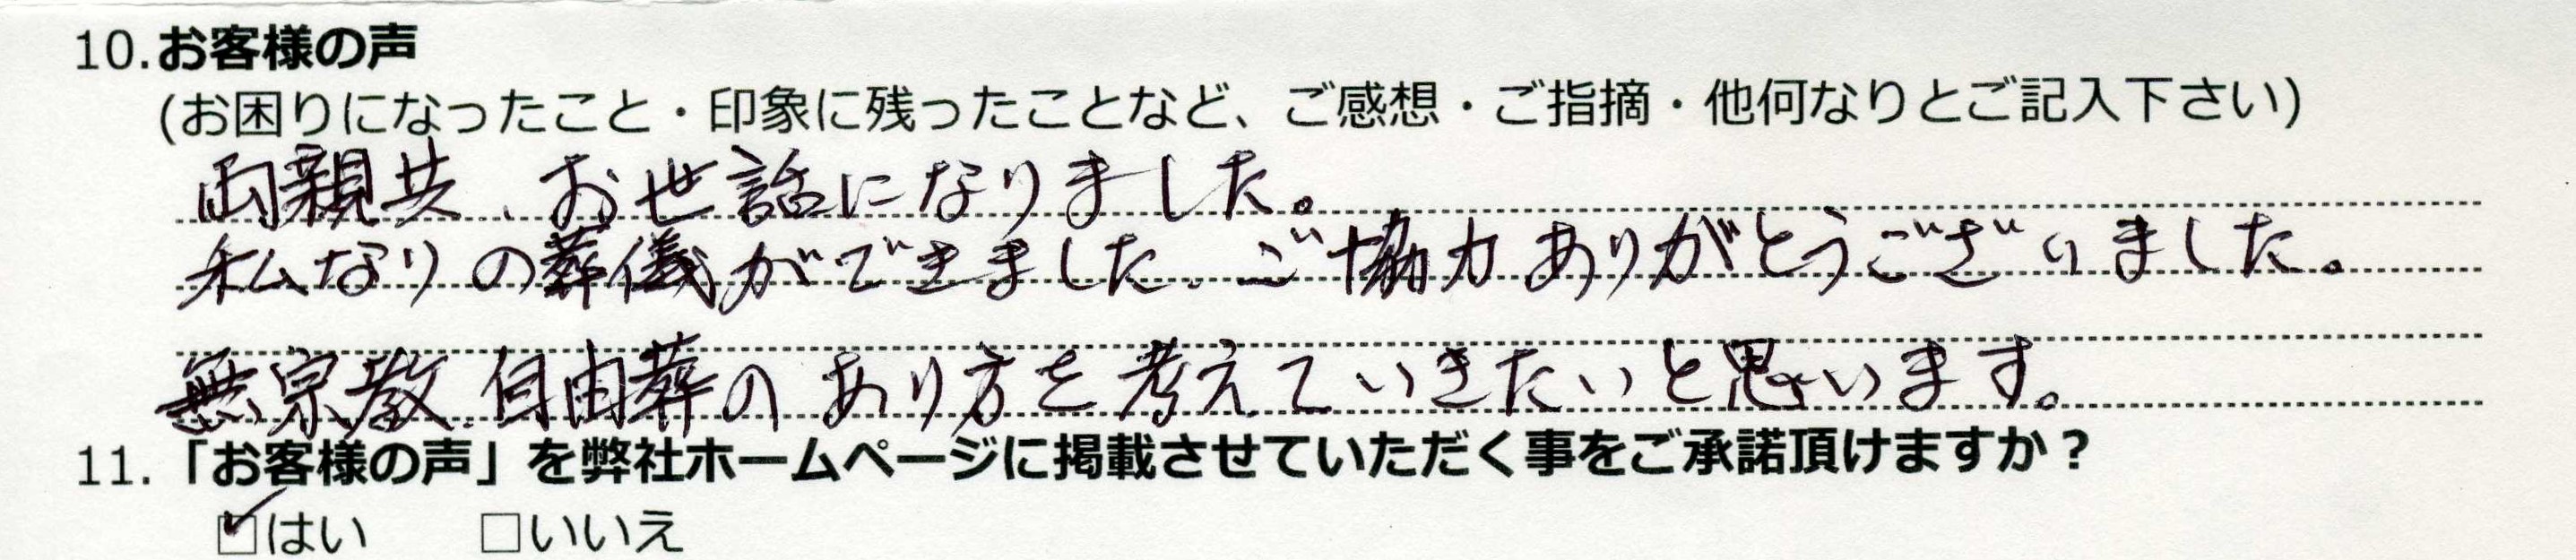 10.お客様の声
(お困りになったこと・印象に残ったことなど、ご感想・ご指摘・他何なりとご記入下さい)
両親共、お世話になりました。
私なりの葬儀ができました。ご協力ありがとうございました。
無宗教、自由葬のあり方を考えていきたいと思います。
11.「お客様の声」を弊社ホームページに掲載させていただく事をご承諾頂けますか？
☑はい　□いいえ